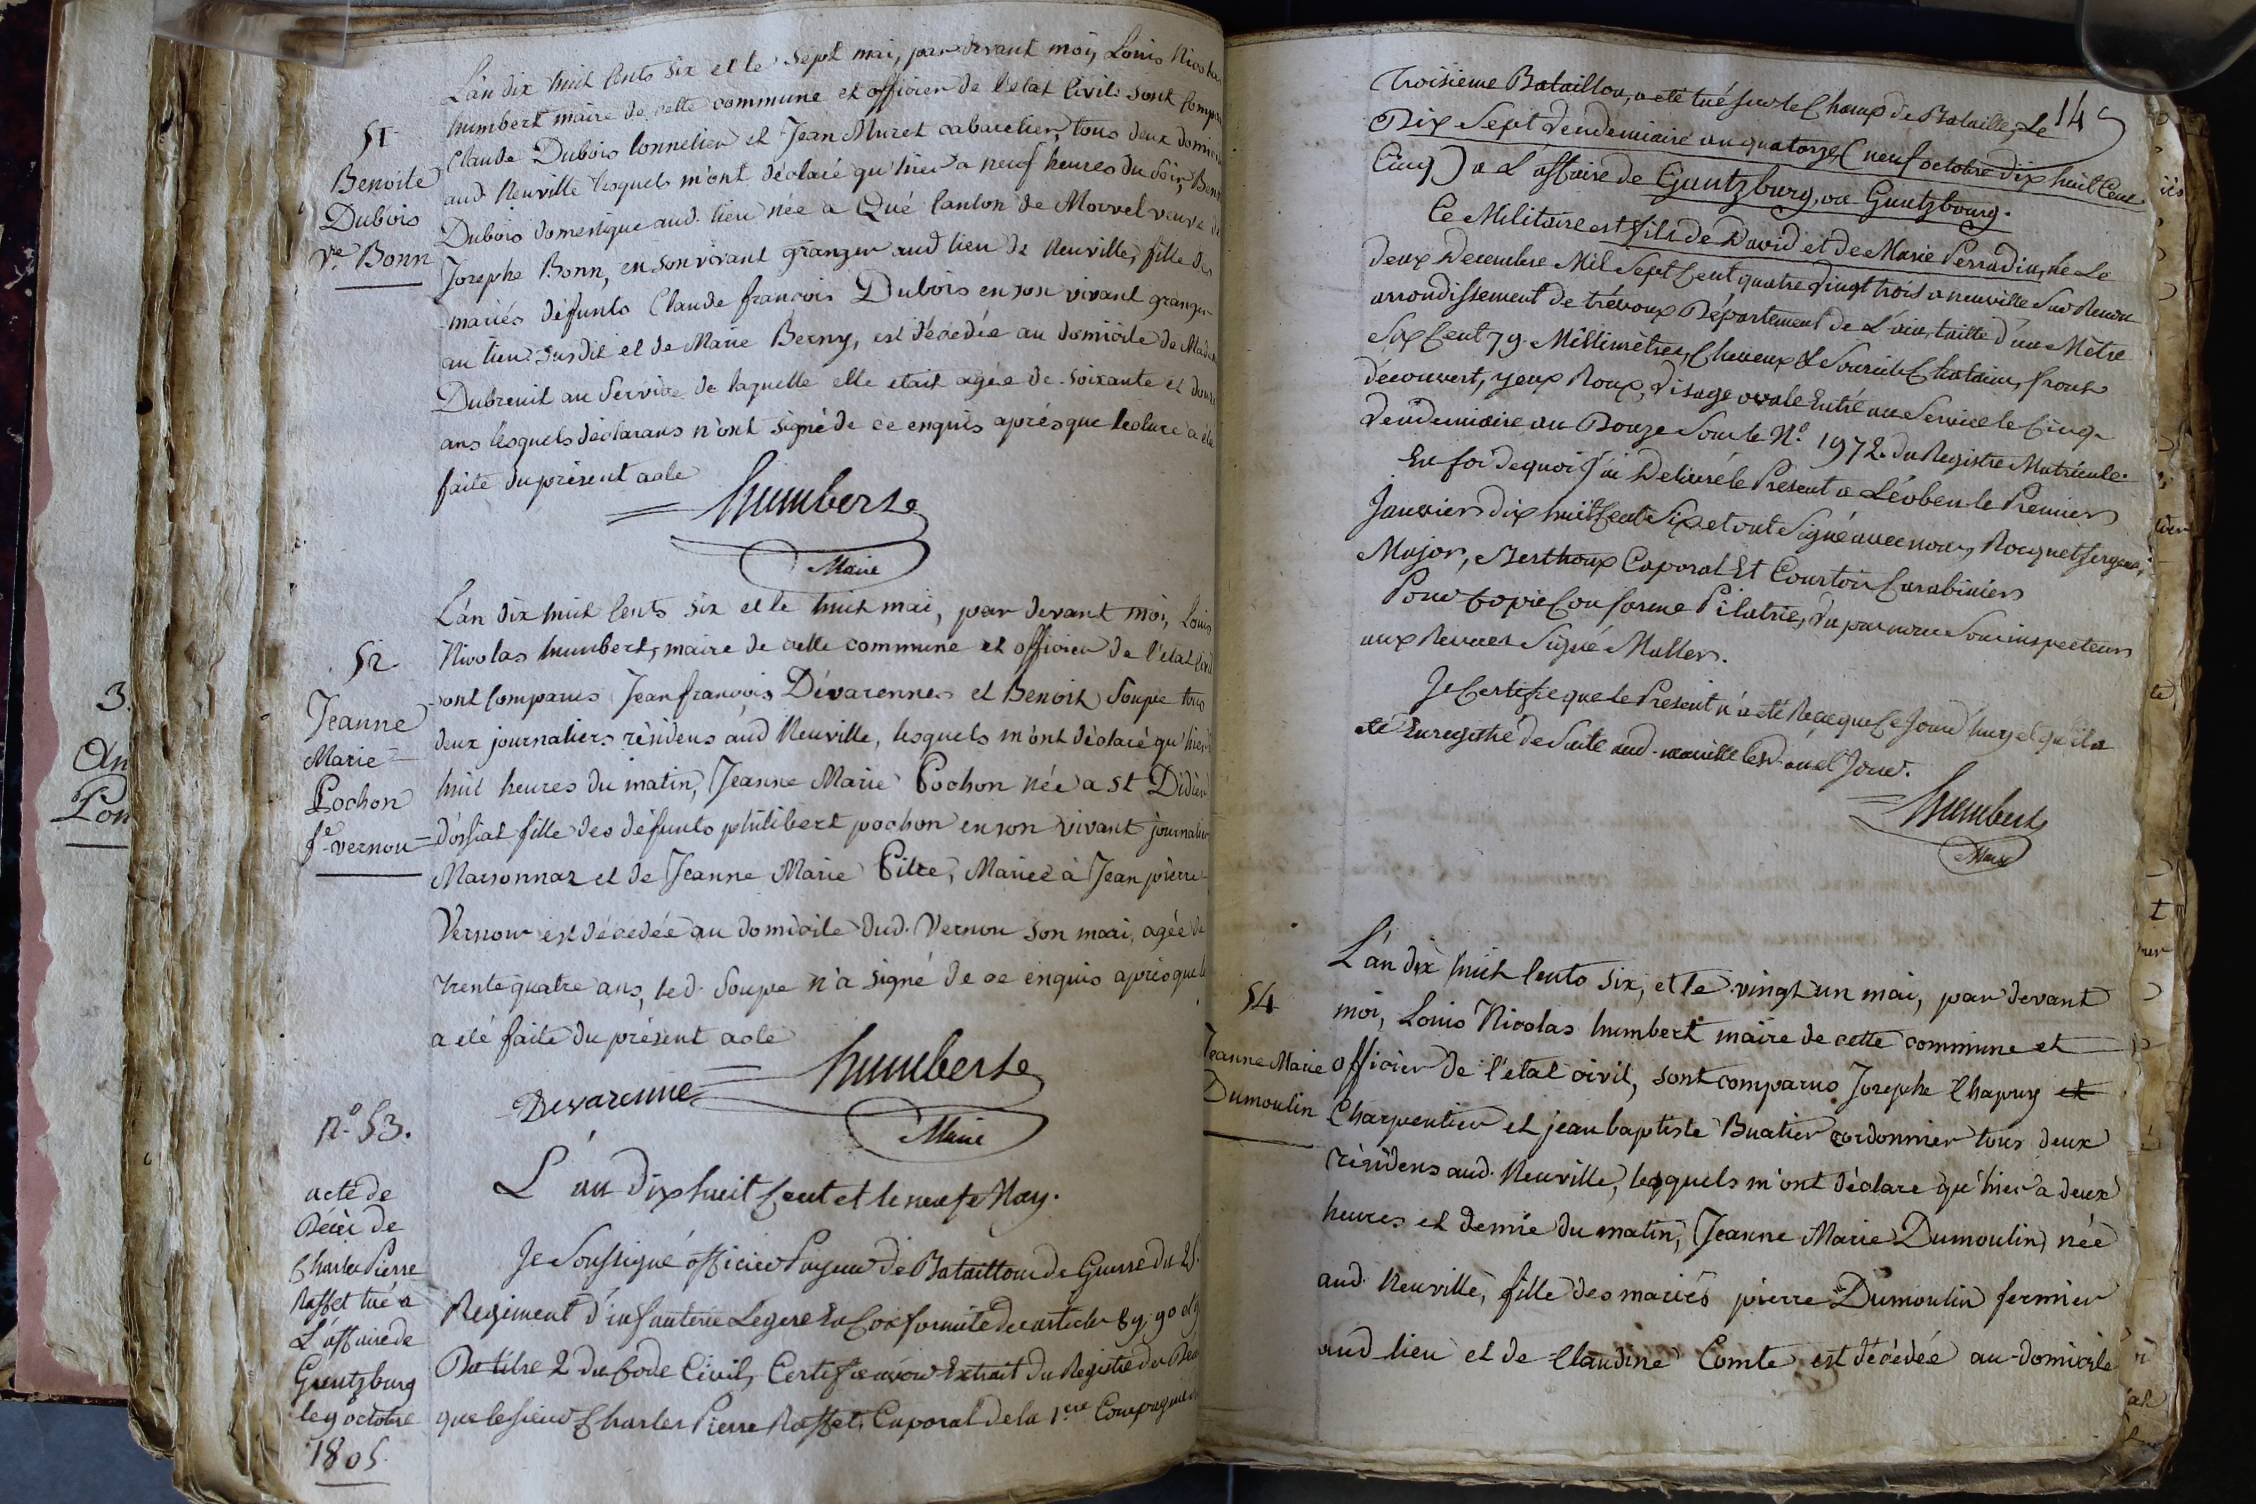 51
Benoite
Dubois
Ve. Bonn
L'an dix huit cents six et le sept mai, par devant moi, Louis Nicolas
humbert maire de cette commune et officier de l'etat Civil sont
Claude Dubois tonnelier et Jean Muret cabaretier, tous deux
aud. Neuville lesquels m'ont déclaré qu'hier a neuf heures du Soir,
Dubois domestique aud. lieu née a Qué canton de Morvel veuve de
Josephe Bonn, en son vivant granger aud lieu de Neuville, fille des
mariés défunts Claude françois Dubois en son vivant granger
au lieu susdit et de Marie Berny, est décedée au domicile de
Dubreuil au Service de laquelle elle etait agée de soixante et douze
ans lesquels déclarans n'ont signé de ce enquis aprés que lecture a été
faite du présent acte
humbert
Maire
52
Jeanne
Marie
Pochon
fe. vernou
L'an dix huit cents six et le huit mai, par devant moi, Louis
Nicolas humbert, maire de cette commune et officier de l'etat Civil
sont comparus Jean françois Dévarennes et Benoit Soupe tous
deux journaliers résidens aud Neuville, lesquels m'ont déclaré qu'hier
huit heures du matin, Jeanne Marie Pochon née a St Didier
d'ossiat fille des défunts philibert pochon en son vivant journalier
Marsonnaz et de Jeanne Marie Pitre, Mariée à Jean pierre
Vernou est décedée au domicile dud. Vernou son mari, agée de
trente quatre ans, led. Soupe n'a signé de ce enquis aprés que
a eté faite du présent acte
Devarenne
humbert
Maire
n°. 53.
acte de
Décès de
Charles Pierre
Raffet tué a
L'affaire de
Guntzburg
le 9 octobre
1805.
L'an dix huit Cent et le neuf May.
Je Soussigné officier Payeur de Bataillons de Guerre du 25e
Regiment d'infanterie Legere En Conformité des articles 89, 90 et 9
Du titre 2 du Code Civil, Certifie avoir Extrait du Registre des
que le sieur Charles Pierre Raffet, Caporal de la 1ere Compagnie
145
Troisieme Bataillon, a eté tué sur le Champ de Bataille, Le
Dix Sept Vendemiaire an quatorze (neuf octobre dix huit Cent
Cinq) a L'affaire de Guntzburg, ou Guntzbourg.
Ce Militaire est fils de David et de Marie Perradin, né Le
deux Decembre Mil Sept Cent quatre vingt trois a neuville Sur Renou
arrondissement de trévoux Département de L'ain, taille d'un Mètre
Six Cent 79. Millimètres, Cheveux & Sourcils Chatains, front
découvert, yeux Roux, visage ovale Entré au Service le Cinq
Vendemiaire an Douze Sous le N°. 1972. du Registre Matricule.
En foi de quoi J'ai Delivré le Présent a Léoben le Premier
Janvier dix huit Cent Six et ont Signé avec nous, Rocquet Sergent,
Major, Berthoux Caporal Et Courtois Carabiniers
Pour Copie Conforme Pilatrie, Vu par nous Sous inspecteurs
aux Revues Signé Muller.
Je Certifie que le Présent n'a eté Reçu que Ce Jourd'huy et qu'il a
eté Enregistré de Suite aud. neuville led. an et Jour.
humbert
Maire
54
Jeanne Marie
Dumoulin
L'an dix huit cents six, et le vingt un mai, par devant
moi, Louis Nicolas humbert maire de cette commune et
officier de l'etat civil, sont comparus Josephe Chapuy et
Charpentier et jean baptiste Buatier cordonnier tous deux
résidens aud. Neuville, lesquels m'ont déclaré qu'hier a deux
heures et demie du matin, Jeanne Marie Dumoulin née
aud. Neuville, fille des mariés pierre Dumoulin fermier
aud lieu et de Claudine Comte est décédée au domicile